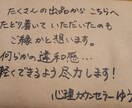 たくさんの出品からこちらへ
たどり着いていただいたのも
ご縁かと想います。
何らかの違和感…
軽くできるよう尽力します!
心理カウンセラーゆう